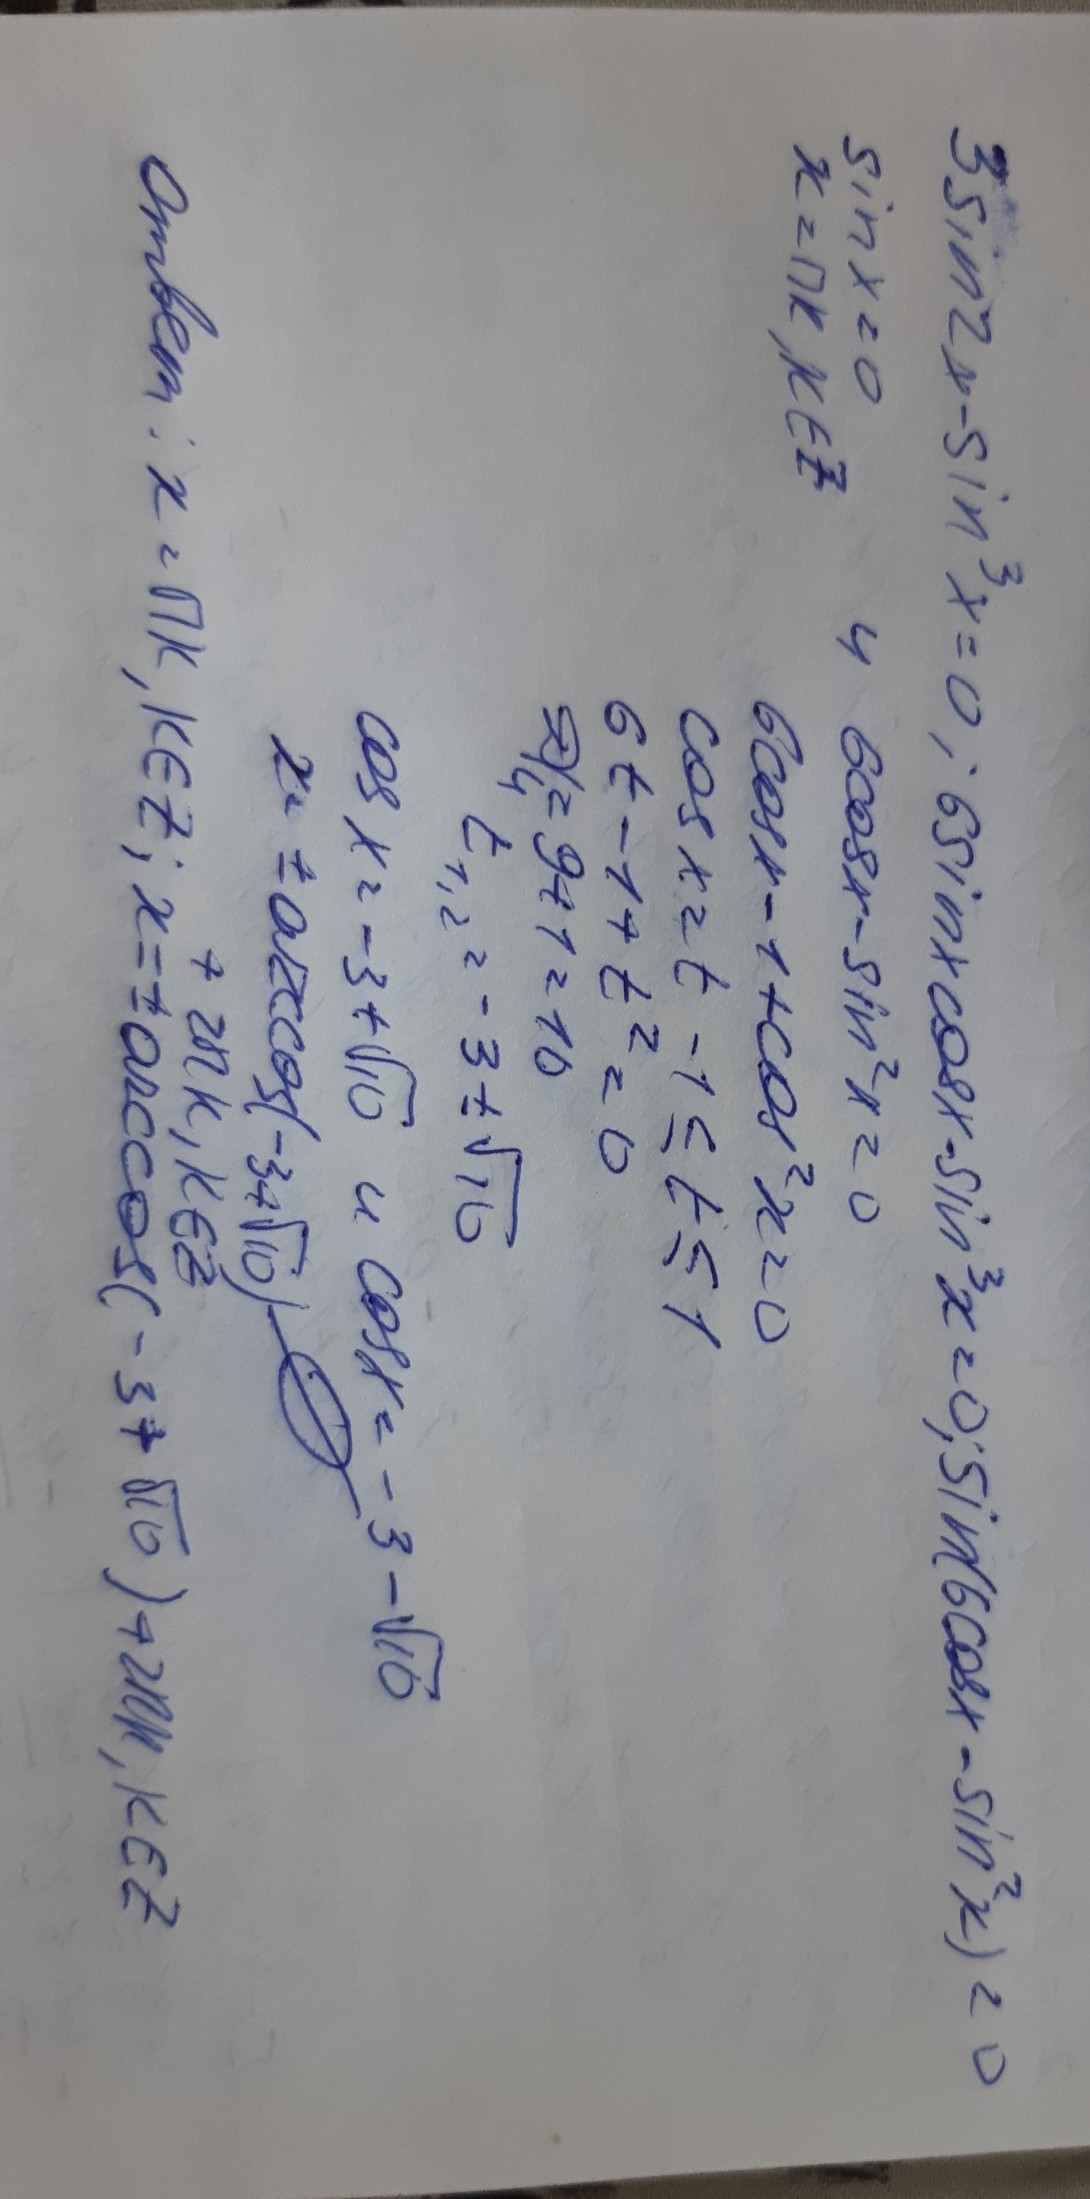 3sin2x-sin³x=0; 6sinxcosx-sin³x=0; sin(6cosx-sin²x)=0
sinx=0 и 6cosx-sin²x=0
x=πk, k∈Z 6cosx-1+cos²x=0
cosx=t -1≤t≤1
6t-1+t²=0
D/4=9+1=10
t₁,₂=-3±√10
cosx=-3+√10 и cosx=-3-√10
x=±arccos(-3+√10) ∅
+2πk, k∈Z
Ответ: x=πk, k∈Z; x=±arccos(-3+√10)+2πk, k∈Z